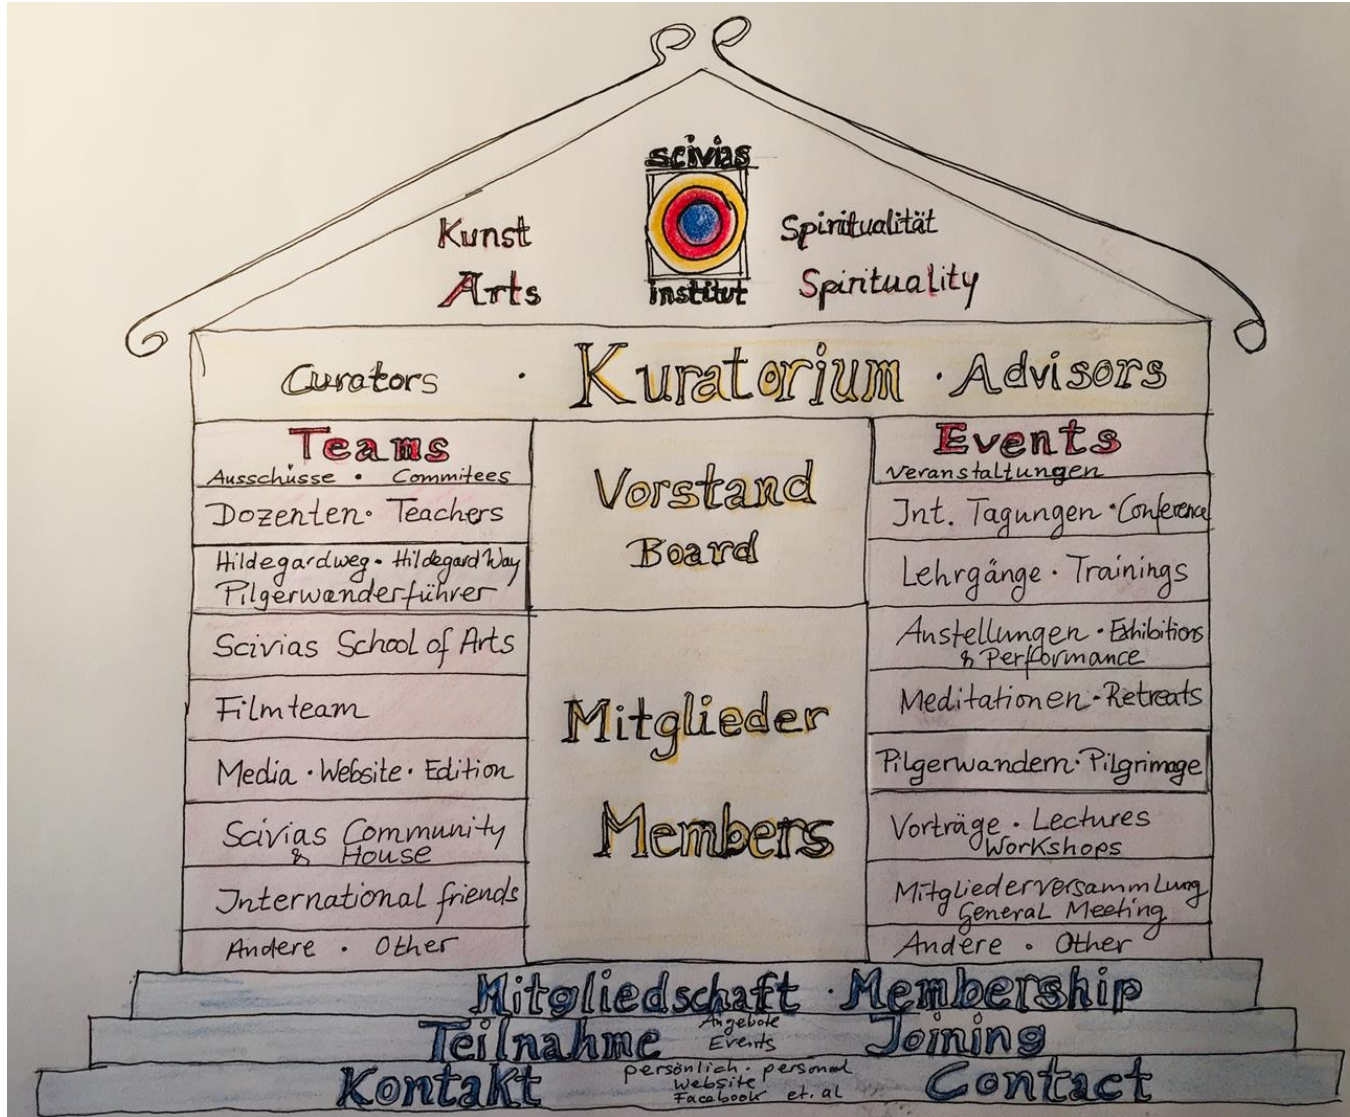 scivias
Kunst
Spiritualität
Arts
institut
Spirituality
Curators · Kuratorium · Advisors
Teams
Ausschüsse · Commitees
Dozenten · Teachers
Hildegardweg · Hildegard Way
Pilgerwanderführer
Scivias School of Arts
Filmteam
Media · Website · Edition
Scivias Community
& House
International friends
Andere · Other
Vorstand
Board
Mitglieder
Members
Events
Veranstaltungen
Int. Tagungen · Conference
Lehrgänge · Trainings
Austellungen · Exhibitions
& Performance
Meditationen · Retreats
Pilgerwandern · Pilgrimage
Vorträge · Lectures
Workshops
Mitgliederversammlung
General Meeting
Andere · Other
Mitgliedschaft · Membership
Teilnahme
Angebote
Events
Joining
Kontakt
persönlich · personal
Website
Facebook et. al
Contact